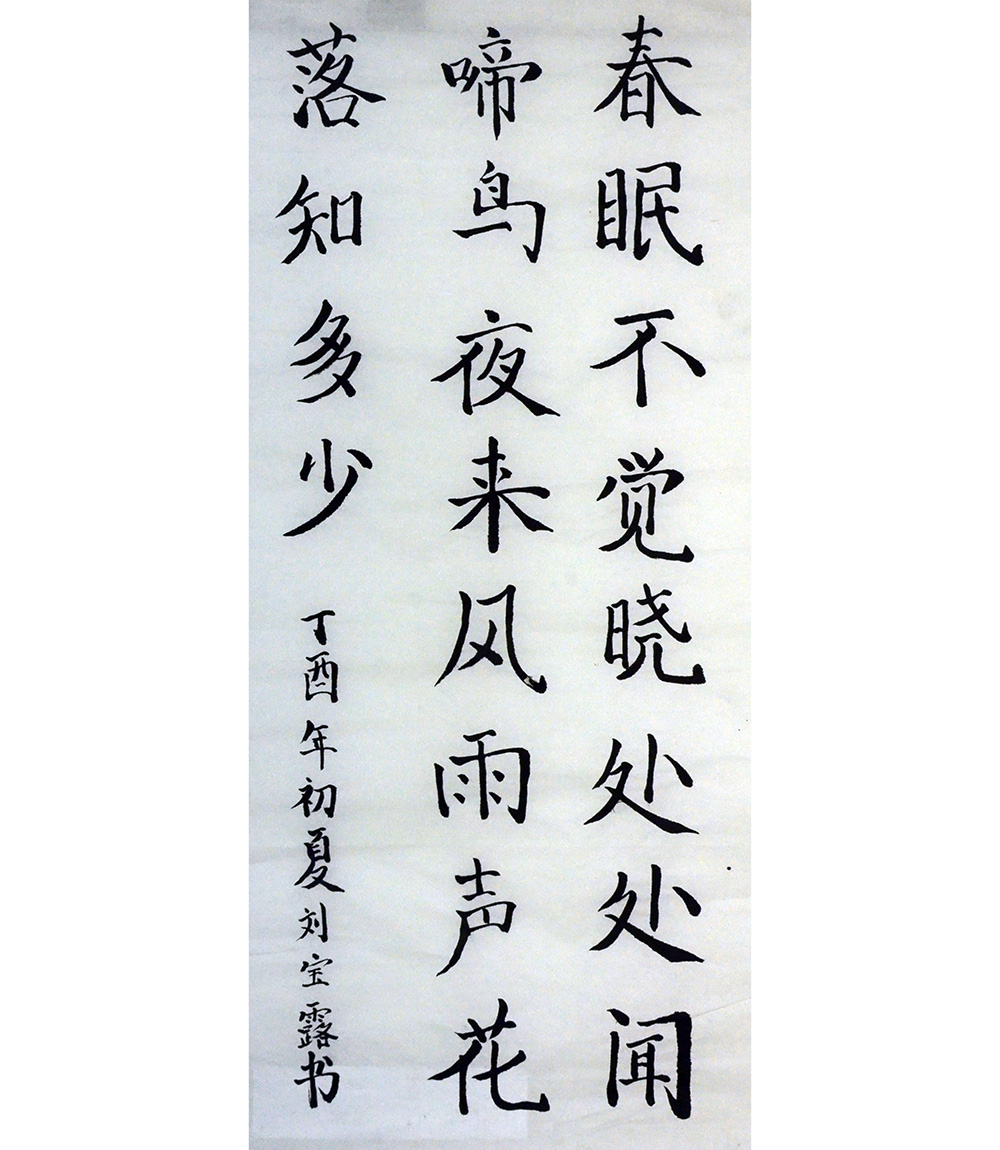 春眠不觉晓处处闻
啼鸟夜来风雨声花
落知多少 丁酉年初夏刘宝露书